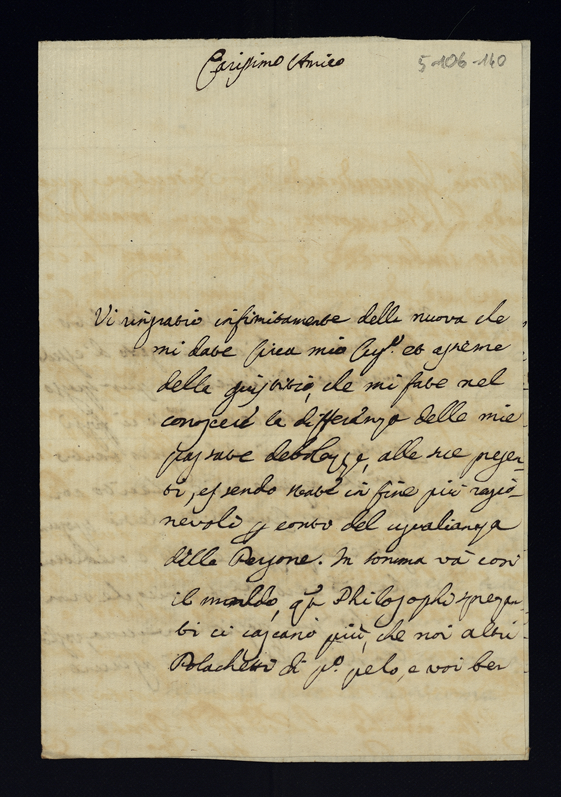 Carissimo Amico
5-106-140
Vi ringratio infinitamente della nuova che
mi date circa mio et assieme
della giustitia, che mi fate nel
conoscere la differanza delle mie
passate debolezze, alle sue presen-
ti, essendo state in fine più ragio-
nevoli conto del ugualianza
delle Persone. In somma và così
il mondo, Philosophi sprezan-
ti ci cascano più, che noi altri
Polachetti di p.o pelo, e voi ben